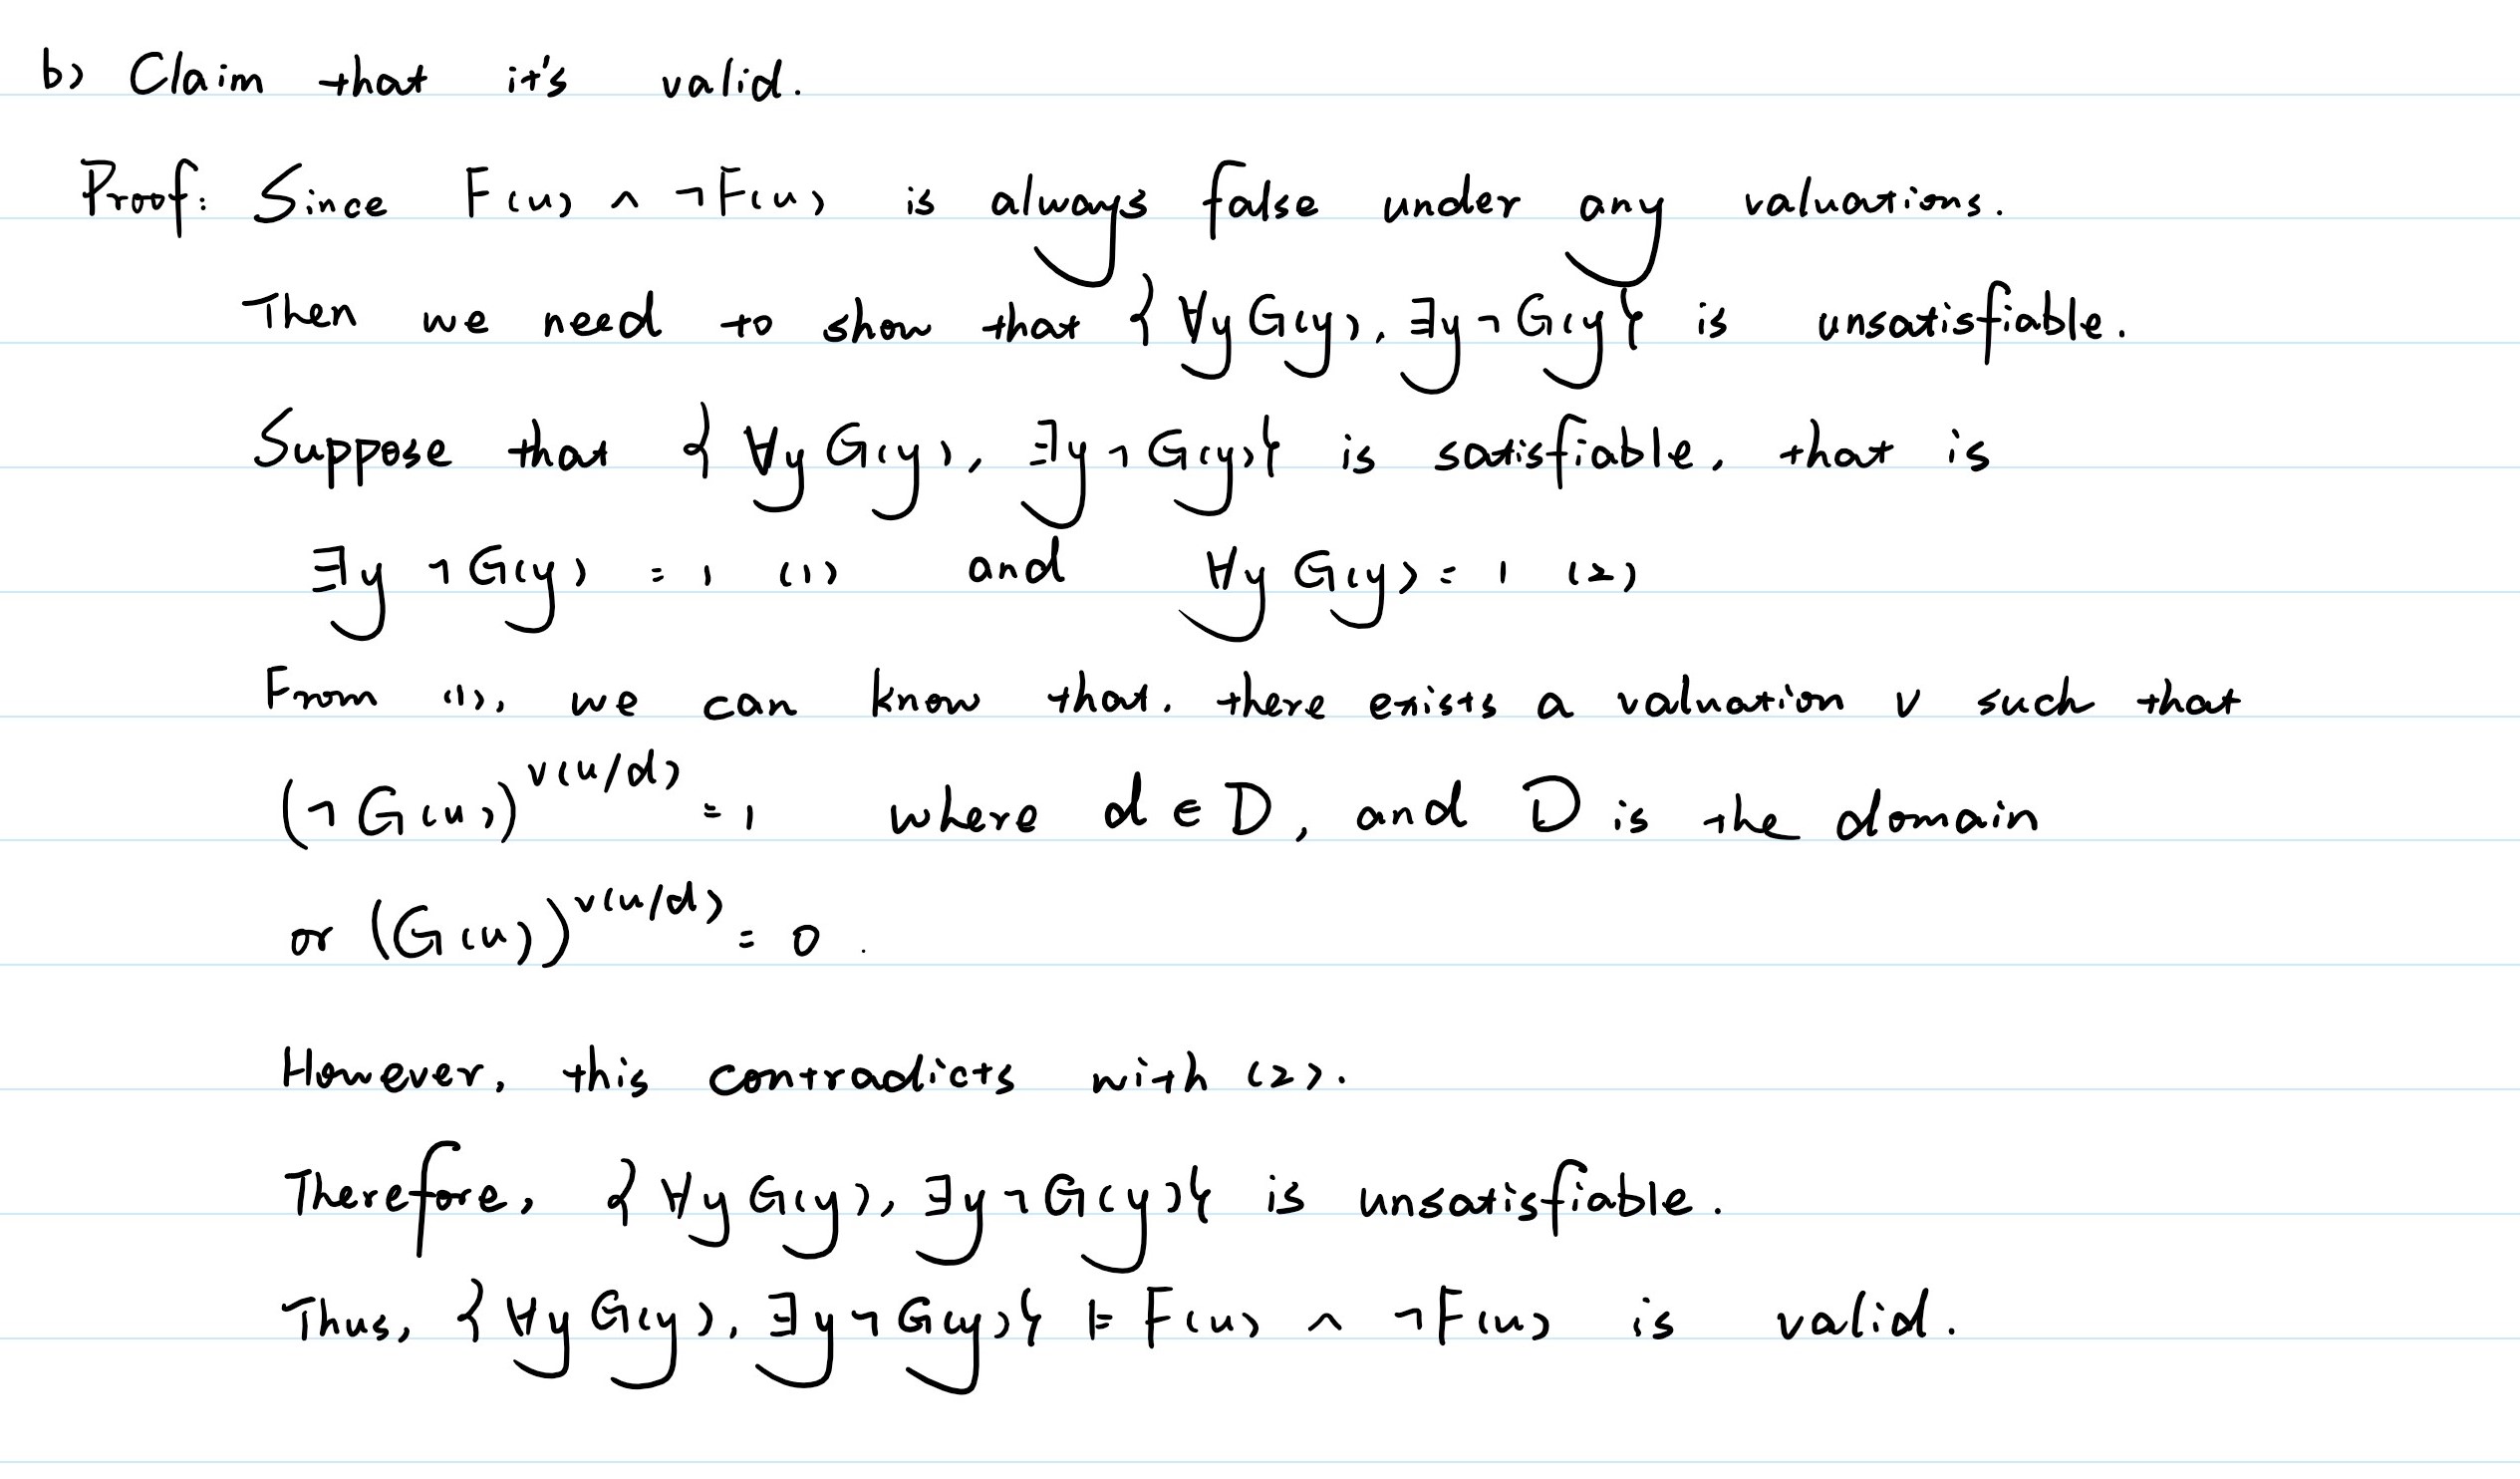 b) Claim that it's valid.
Proof: Since F(u) ∧ ¬F(u) is always false under any valuations.
Then we need to show that {∀y G(y), ∃y ¬G(y} is unsatisfiable.
Suppose that {∀y G(y), ∃y ¬G(y)} is satisfiable, that is
∃y ¬G(y) = 1 (1) and ∀y G(y) = 1 (2)
From (1), we can know that, there exists a valuation v such that
(¬G(u))^v(u/d) = 1 where d ∈ D, and D is the domain
or (G(u))^v(u/d) = 0.
However, this contradicts with (2).
Therefore, {∀y G(y), ∃y ¬G(y)} is unsatisfiable.
Thus, {∀y G(y), ∃y ¬G(y)} ⊨ F(u) ∧ ¬F(u) is valid.